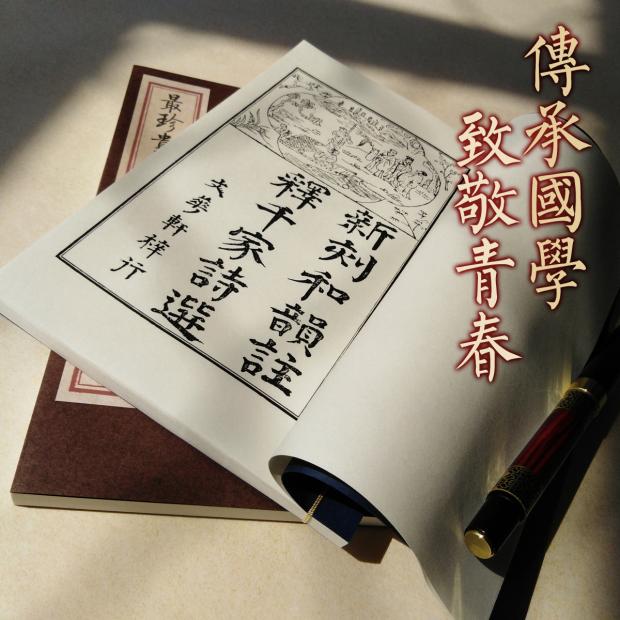 傳承國學
致敬青春
新刻和韻註
釋千家詩選
文 軒梓行
最珍貴